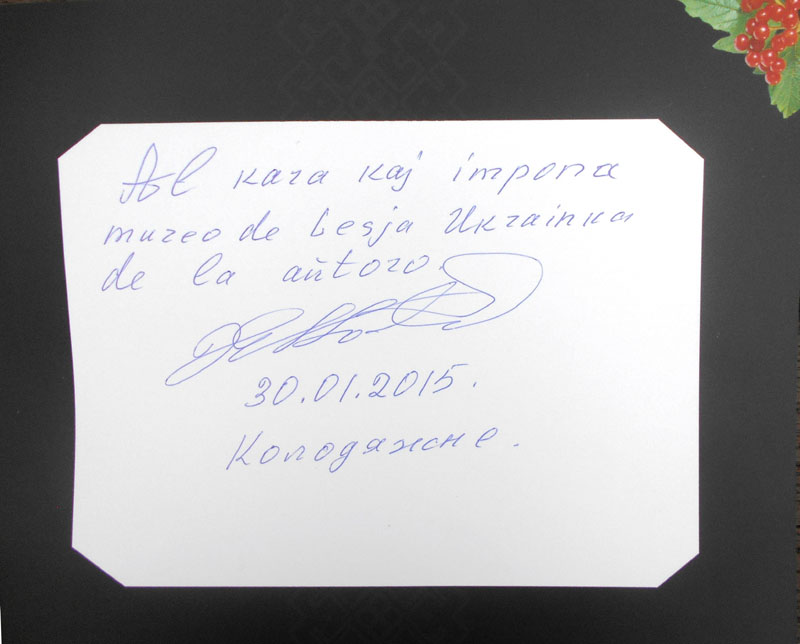 Al kara kaj impona
muzeo de Lesja Ukrainka
de la aŭtoro.
30.01.2015.
Колодяжне.